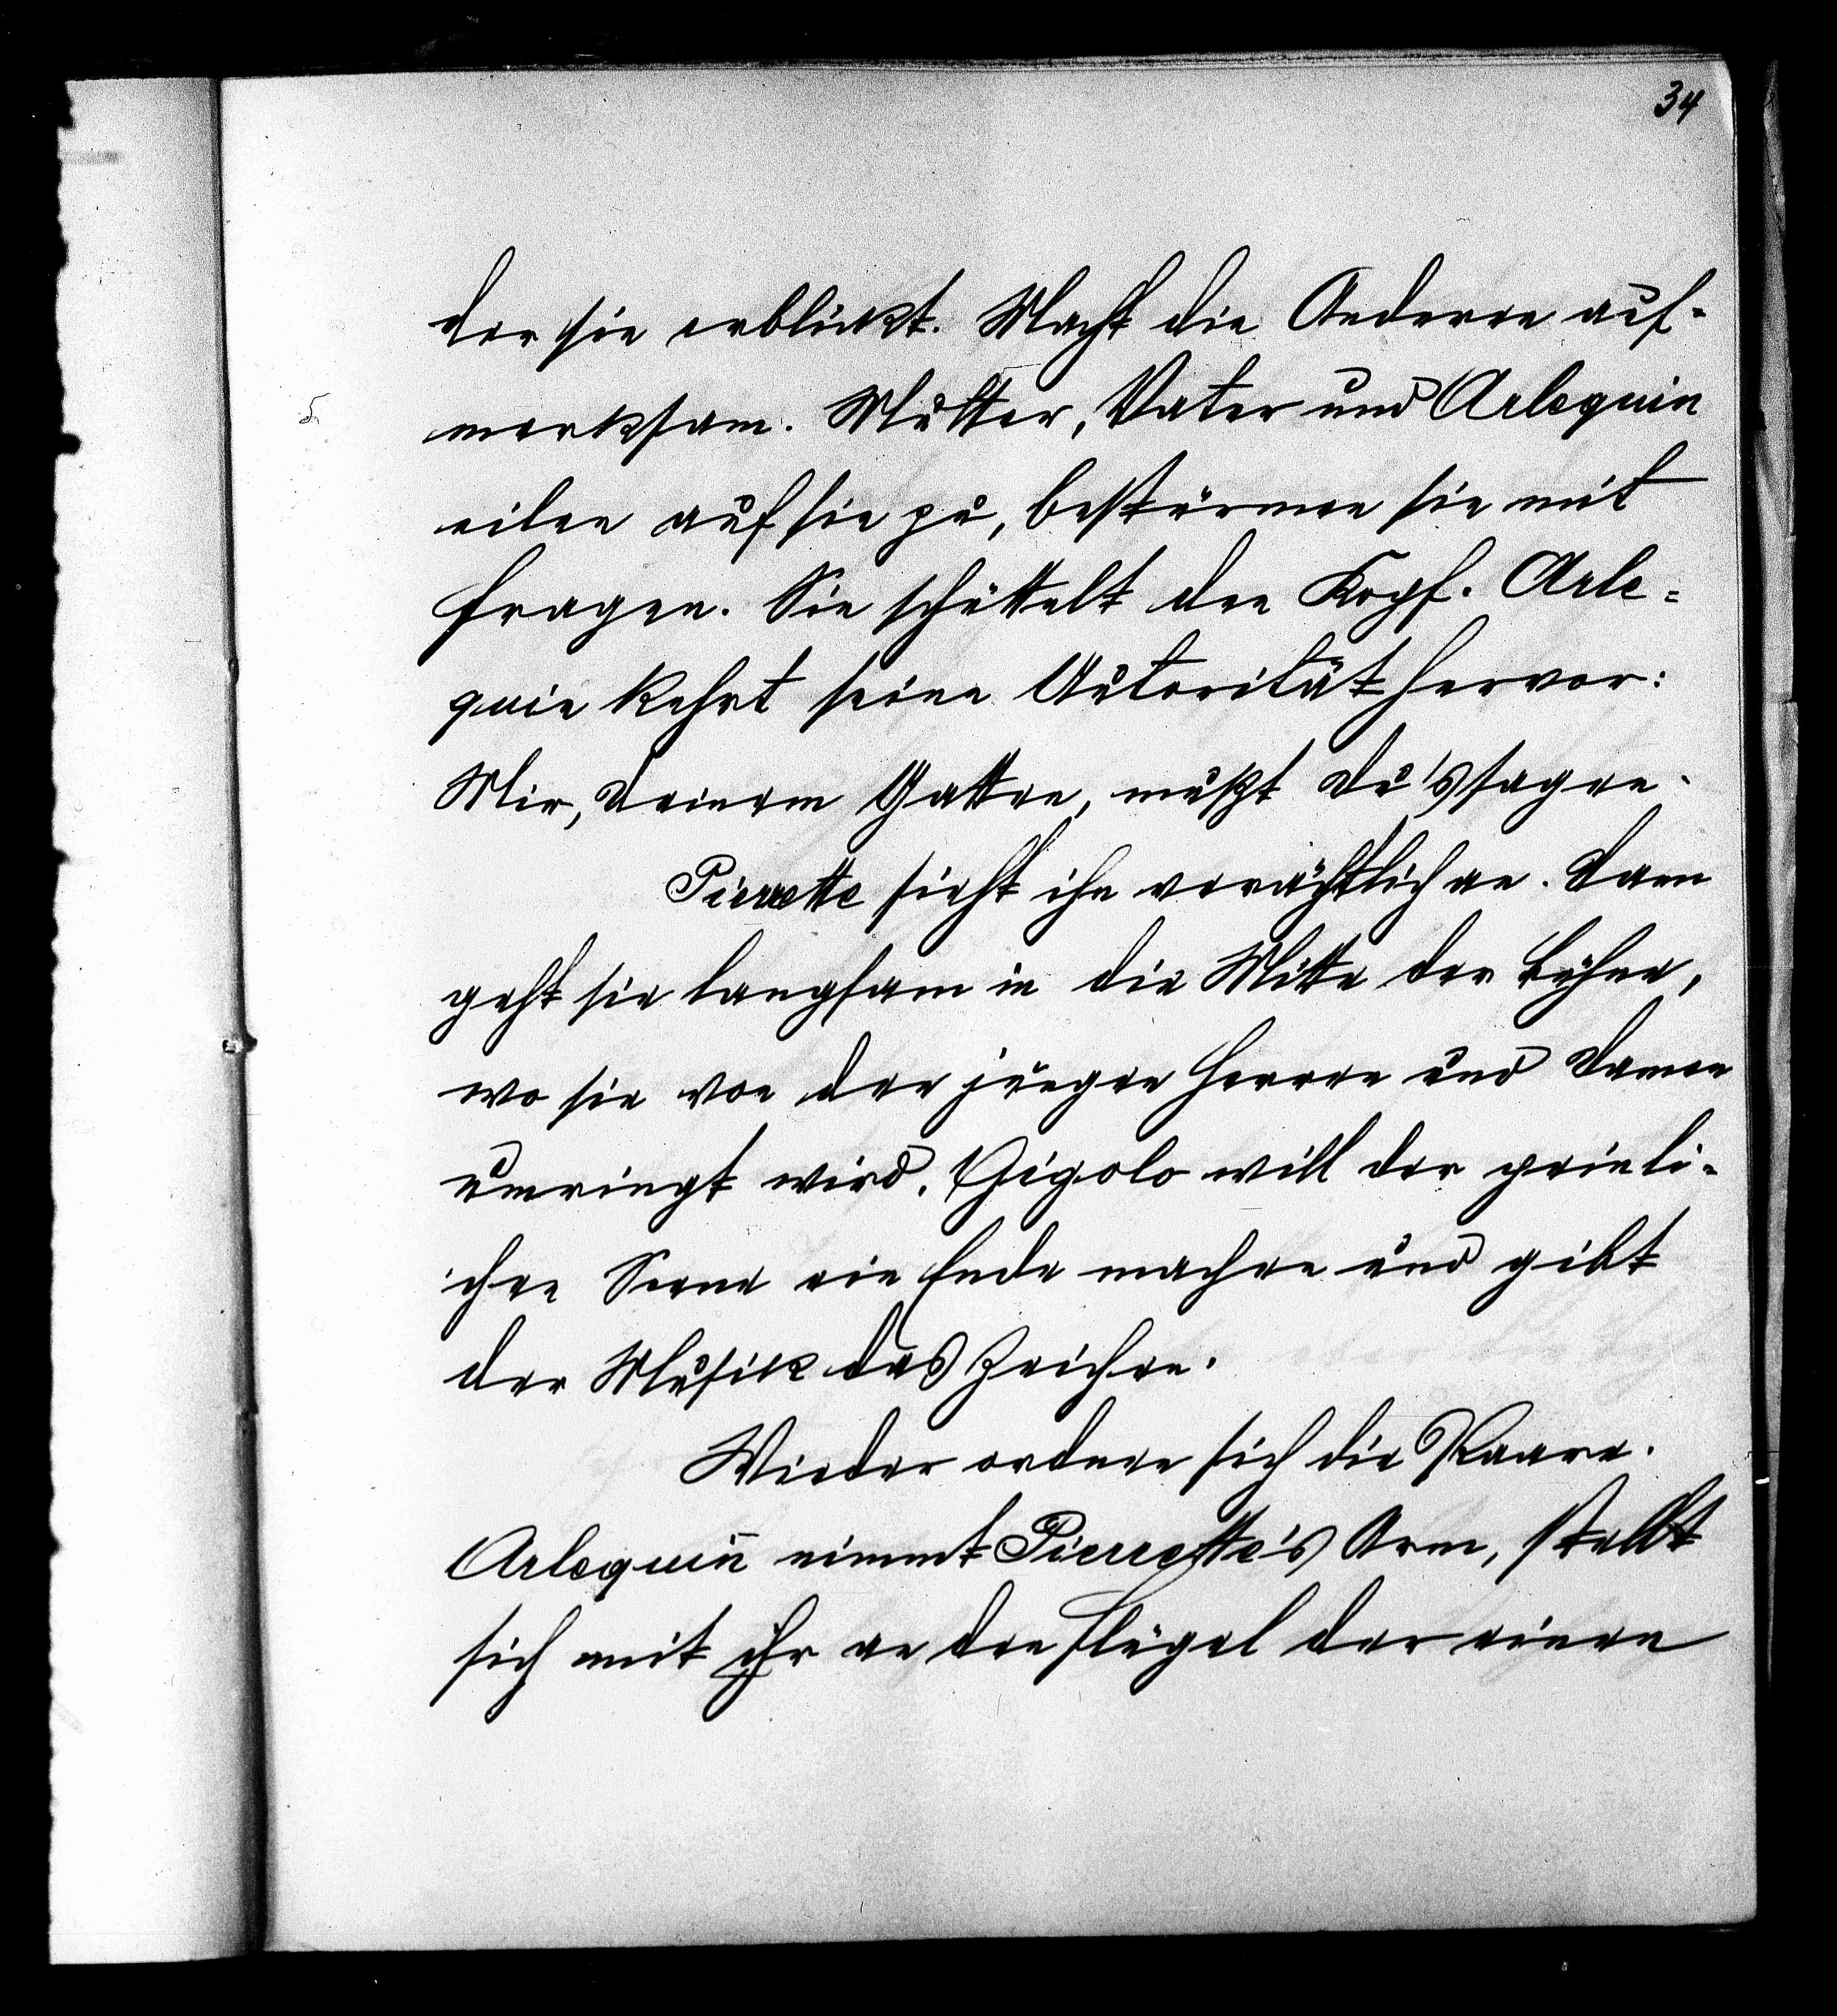 34
der sie erblickt. Macht die Anderen auf-
merksam. Mutter, Vater und Arlequin
eilen auf sie zu, bestürmen sie mit
Fragen. Sie schüttelt den Kopf. Arle-
quin kehrt seine Autorität hervor:
Mir, Deinem Gatten, mußt Du's sagen.
Pierrette sieht ihn verächtlich an. Dann
geht sie langsam in die Mitte der Bühne,
wo sie von den jungen Herren und Damen
umringt wird. Gigolo will der peinli-
chen Scene ein Ende machen und gibt
der Musik das Zeichen.
Wieder ordnen sich die Paare.
Arlequin nimmt Pierrette's Arm, stellt
sich mit ihr an den Flügel der einen